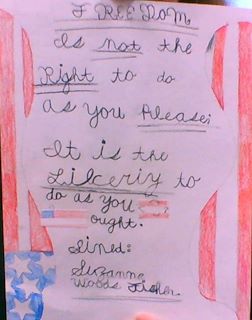 FREEDOM
Is not the
Right to do
as you Please:
It is the
Likeriy to
do as you
ought.
Sined:
Suzanne
Woods Fisher